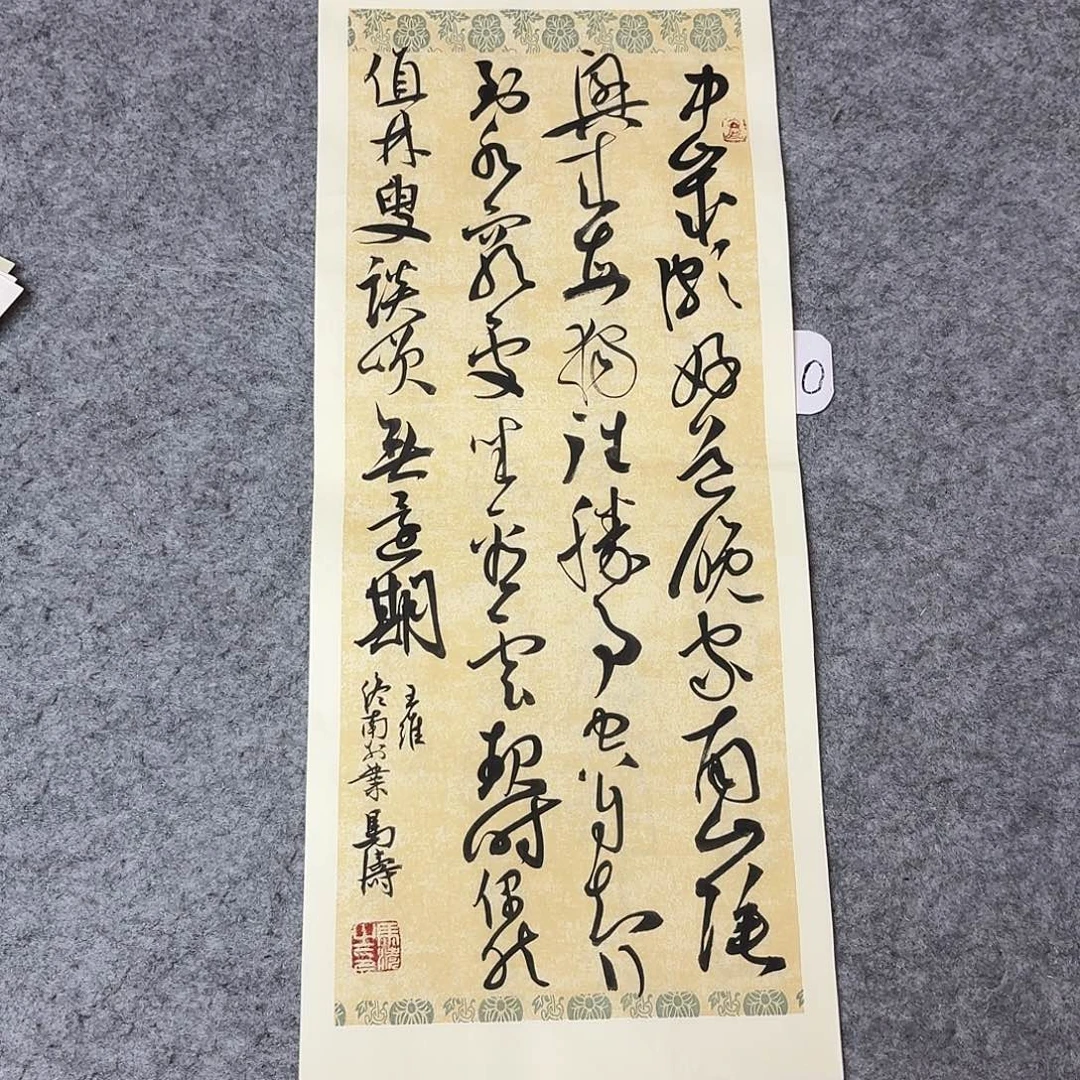 中歲頗好道晚家南山陲
興來每獨往勝事空自知行
到水窮處坐看雲起時偶然
值林叟談咲無還期
王維
終南別業 馬濤
0